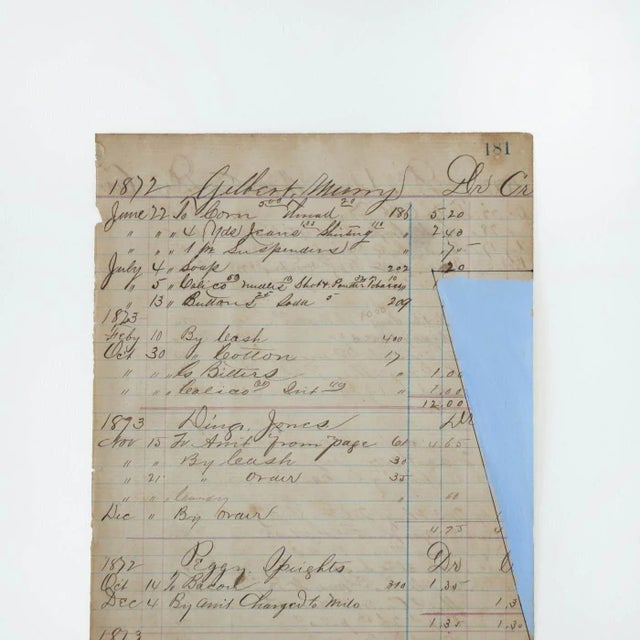 181
1872 Gilbert Murry Dr Cr
June 22 To Corn 5.00 Thread 20 186 5.20
" " " 4 Yds Jeans Shirting " 2.40
" " " 1 pr Suspenders "
July 4 " Soap 202 20
" 5 " Calico Needles Shot & Powder Tobacco
" 13 " Buttons 25 Soda 5 209
1873
Feby 10 By Cash 400
Oct 30 " Cotton 17
" " " Bitters 1.00
" " " Calico 1.00
12.00
1873 Jones Dr
Nov 15 To Amt from page 61 4.65
" " By Cash 30
" 21 " order 35
" " "
Dec " By order
4.75 4
1872 Peggy Speights Dr C
Oct 14 To Bacon 310 1.35
Dec 4 By amt Charged to Milo 1.3
1.35 1.3
1873